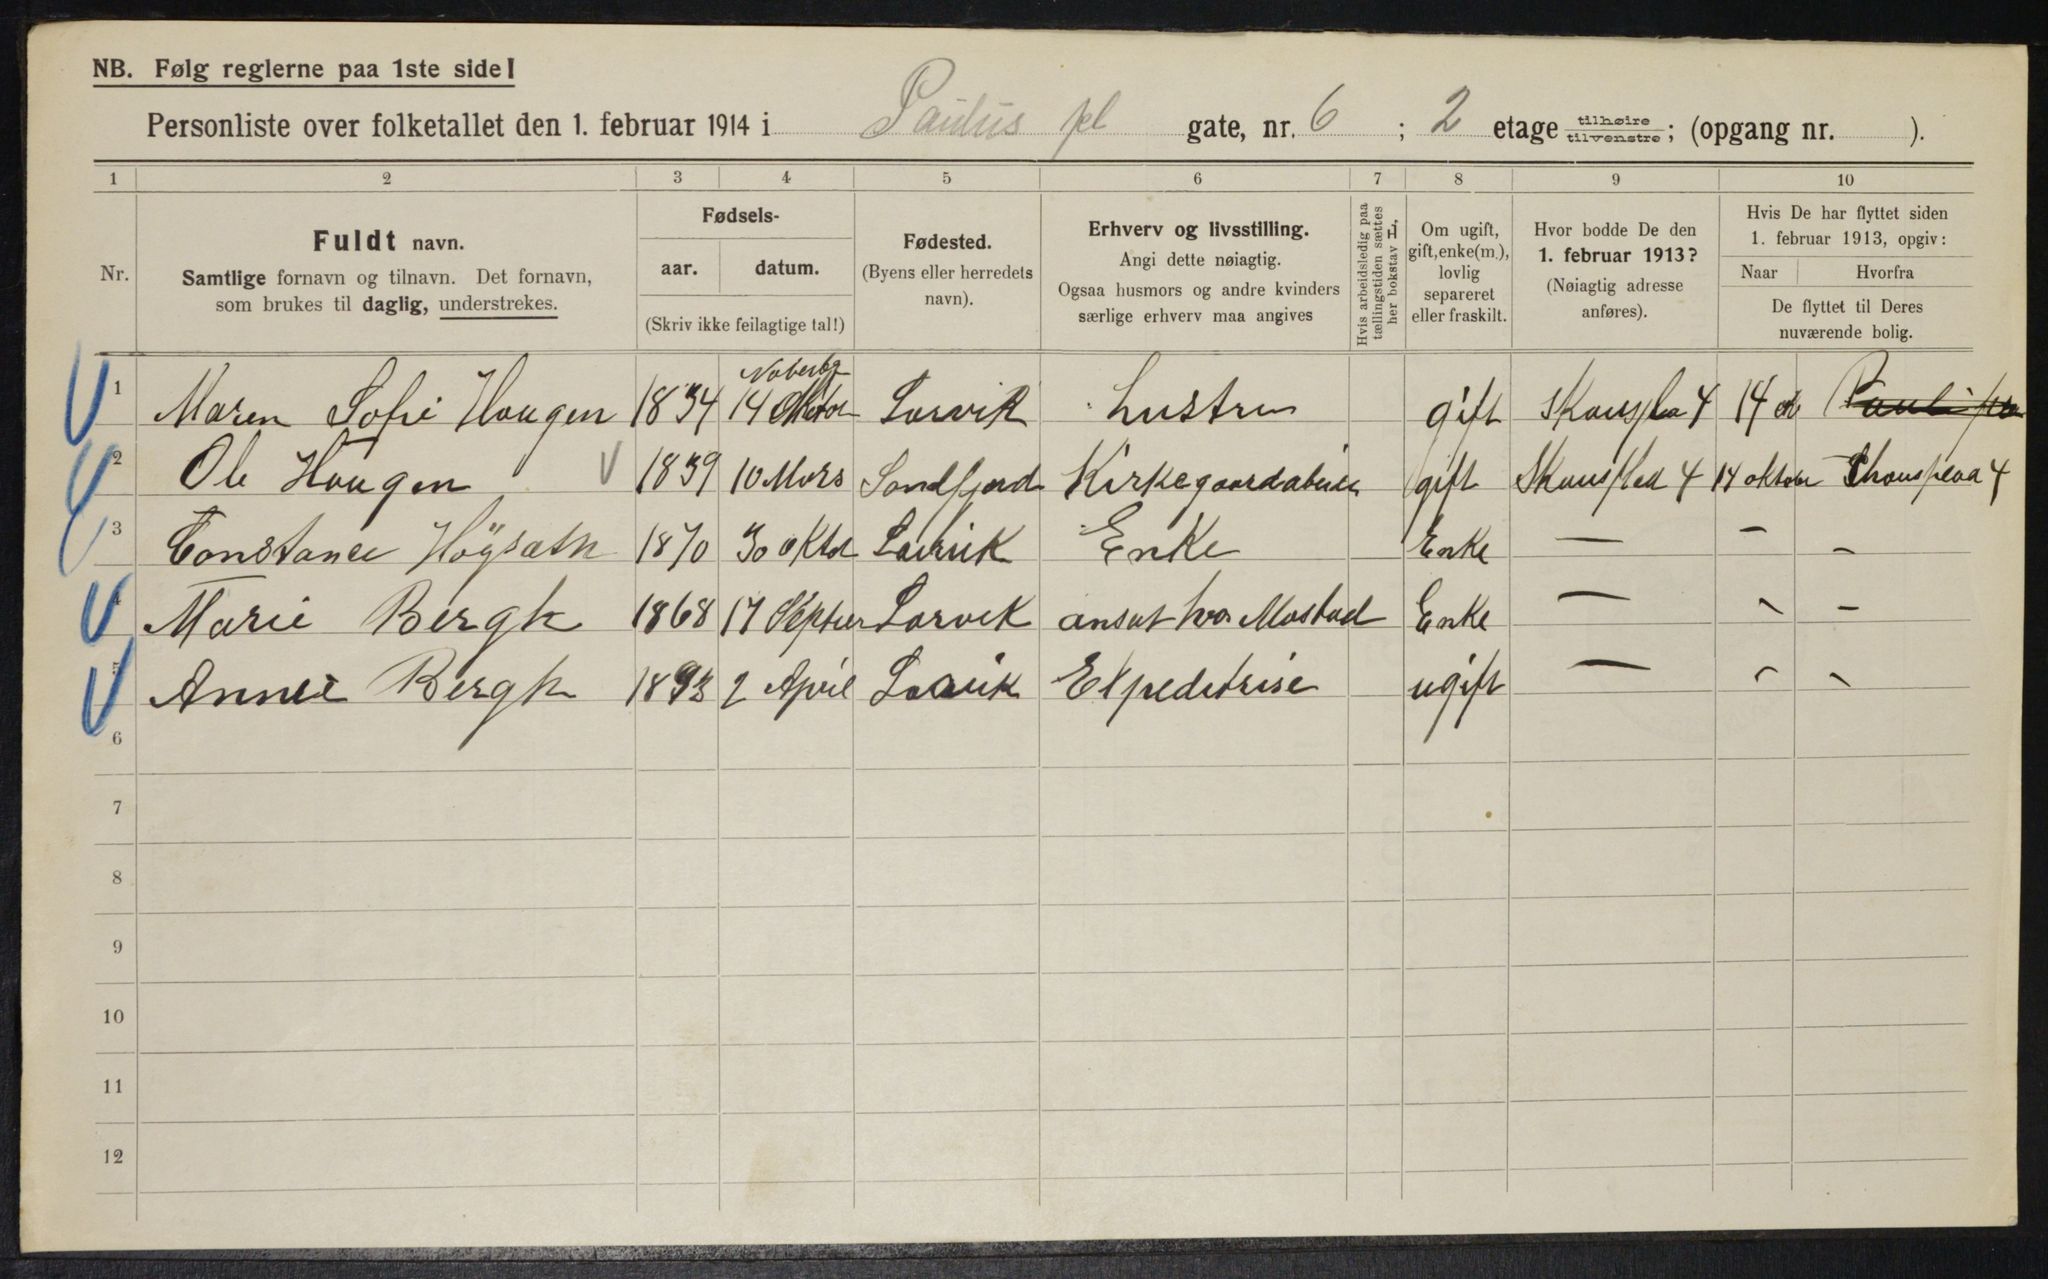 NB. Følg reglerne paa 1ste side!
Personliste over folketallet den 1. februar 1914 i Paulus pl gate, nr. 6 ; 2 etage tilhøire tilvenstre; (opgang nr. ).
1 2 3 4 5 6 7 8 9 10
Nr.
Fuldt navn.
Samtlige fornavn og tilnavn. Det fornavn,
som brukes til daglig, understrekes.
Fødsels-
aar. datum.
(Skriv ikke feilagtige tal!)
Fødested.
(Byens eller herredets
navn).
Erhverv og livsstilling.
Angi dette nøiagtig.
Ogsaa husmors og andre kvinders
særlige erhverv maa angives
Hvis arbeidsledig paa
tællingstiden sættes
her bokstav L.
Om ugift,
gift, enke(m.),
lovlig
separeret
eller fraskilt.
Hvor bodde De den
1. februar 1913?
(Nøiagtig adresse
anføres).
Hvis De har flyttet siden
1. februar 1913, opgiv:
Naar Hvorfra
De flyttet til Deres
nuværende bolig.
1 Maren Sofie Haugen 1834 14 Larvik hustru gift 4 14 ok
2 Ole Haugen 1839 10 Mars Sandfjord gift 4 14 oktober 4
3 Constance 1870 30 oktd Larvik Enke Enke — – –
4 Marie Bergh 1868 17 Larvik ansat hos Mostad Enke — – –
5 Annie Bergh 1893 2 April Larvik Expeditrise ugift — – –
6
7
8
9
10
11
12